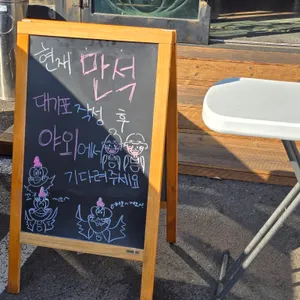 현재 만석
대기표 작성 후
야외에서
기다려주세요